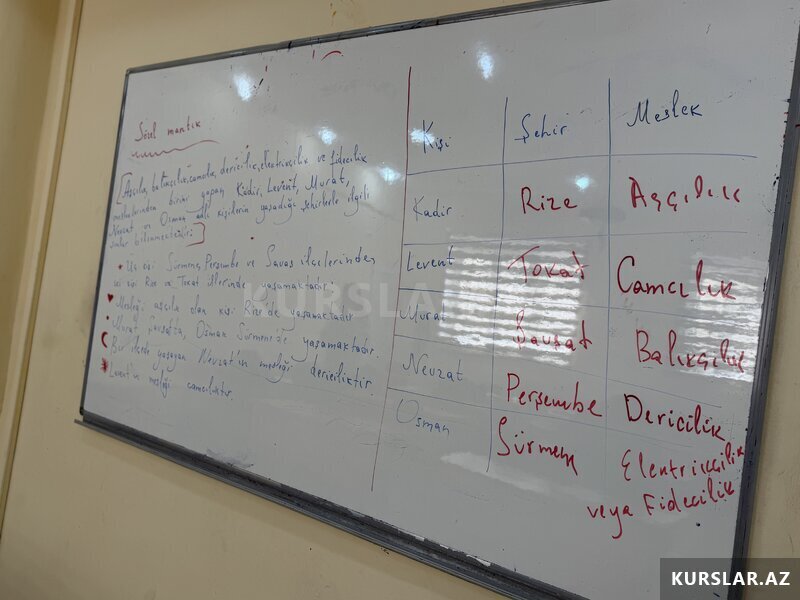 Sözel mantık
[Aşçılık, balıkçılık, camcılık, dericilik, elektrikçilik ve fidecilik
mesleklerinden birini yapan Kadir, Levent, Murat,
Nevzat ve Osman adlı kişilerin yaşadığı şehirlerle ilgili
şunlar bilinmektedir:]
Üç kişi Sürmene, Perşembe ve Şavşat ilçelerinden,
iki kişi Rize ve Tokat illerinde yaşamaktadır.
Mesleği aşçılık olan kişi Rize'de yaşamaktadır
Murat Şavşat'ta, Osman Sürmene'de yaşamaktadır.
Bir ilçede yaşayan Nevzat'ın mesleği dericiliktir
Levent'in mesleği camcılıktır.
Kişi Şehir Meslek
Kadir Rize Aşçılık
Levent Tokat Camcılık
Murat Şavşat Balıkçılık
Nevzat Perşembe Dericilik
Osman Sürmene Elentrikçilik
veya Fidecilik
KURSLAR.AZ
KURSLAR.AZ